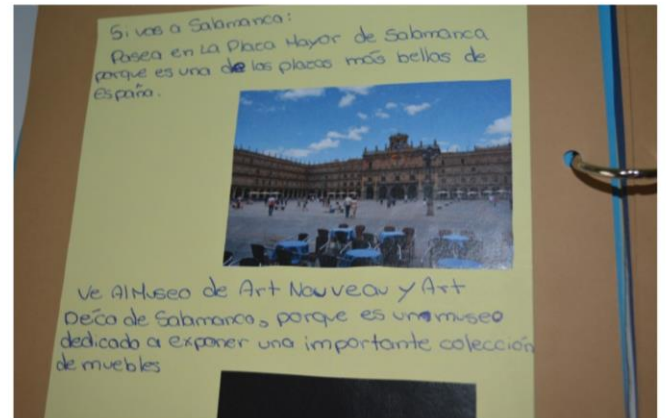 Si vas a Salamanca:
Pasea en La Plaza Mayor de Salamanca
porque es una de las plazas más bellas de
España.
Ve Al Museo de Art Nouveau y Art
Decó de Salamanca, porque es un museo
dedicado a exponer una importante colección
de muebles